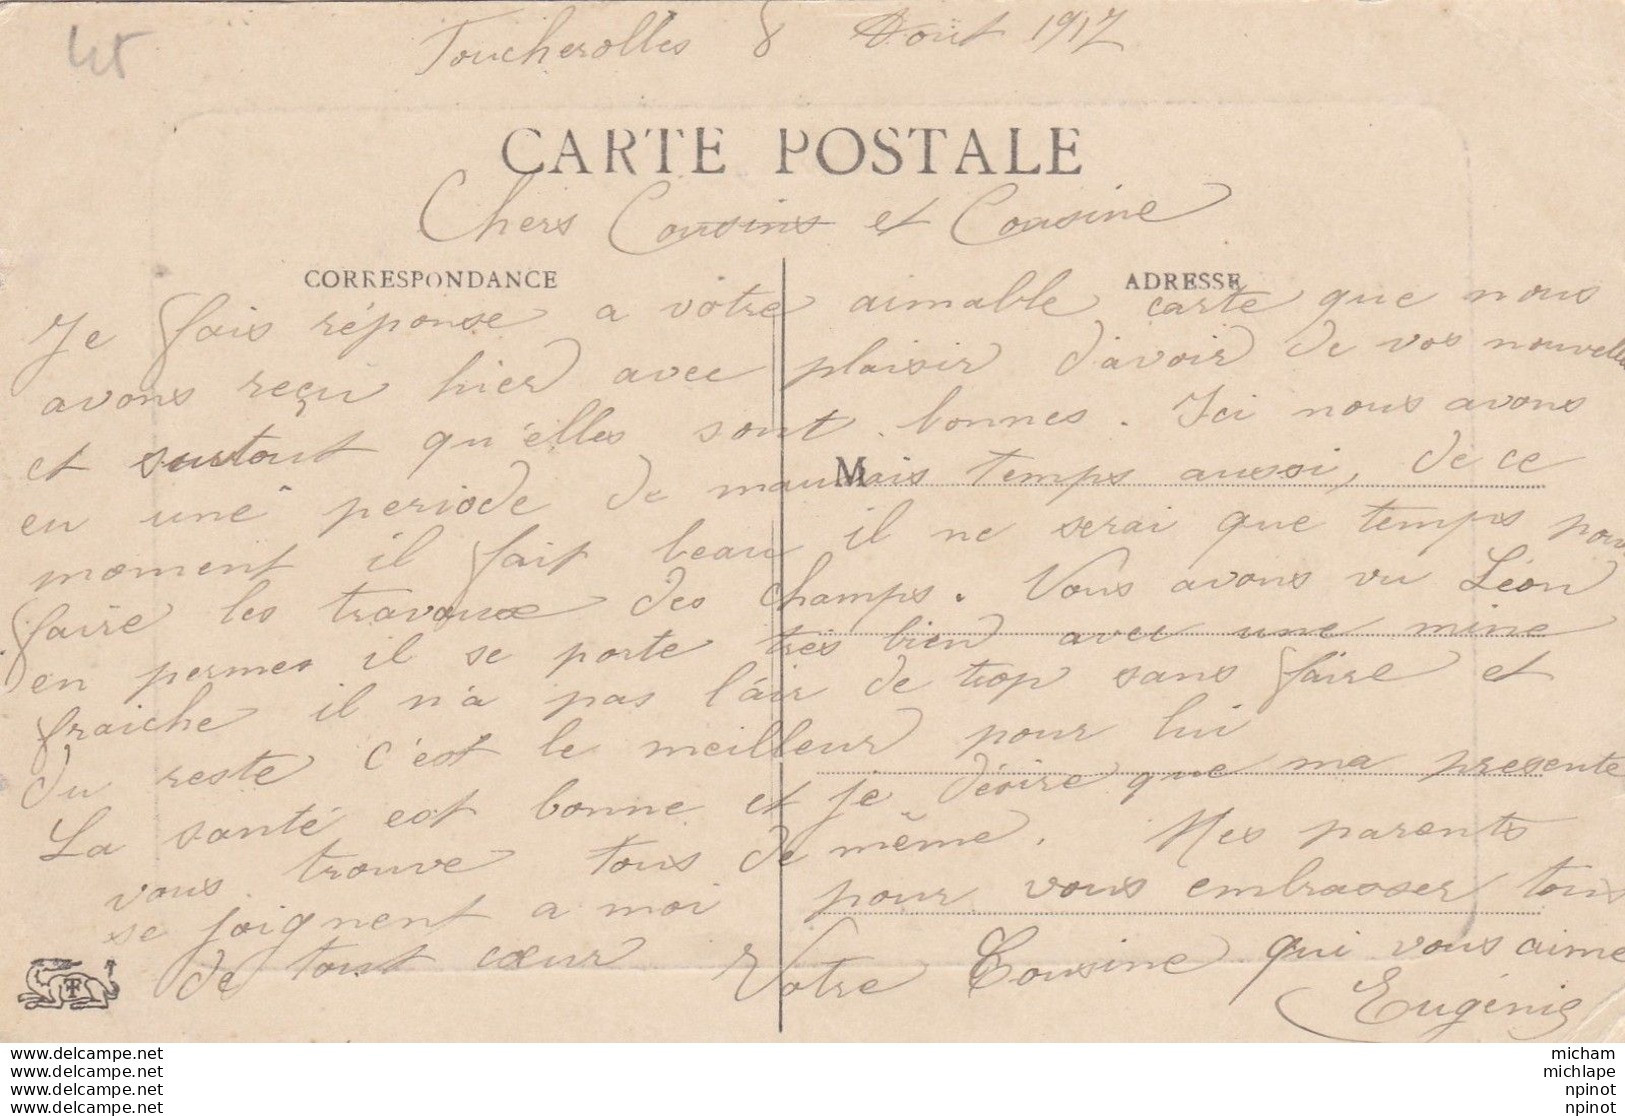 45
Toucherolles 8 Août 1917
CARTE POSTALE
Chers Cousins et Cousine
CORRESPONDANCE
ADRESSE
Je fais réponse a vôtre aimable carte que nous
avons reçu hier avec plaisir d'avoir de vos nouvelles
et surtout qu'elles sont bonnes. Ici nous avons
eu une periode de mauvais temps aussi, de ce
M
moment il fait beau il ne serai que temps pour
faire les travaux des champs. Vous avons vu Léon
en permes il se porte très bien avec une mine
fraiche il n'a pas l'air de trop sans faire et
du reste c'est le meilleur pour lui
La santé est bonne et je désire que ma presente
vous trouve tous de même. Mes parents
se joignent a moi pour vous embrasser tous
de tout cœur Votre Cousine qui vous aime
Eugénie
www.delcampe.net
www.delcampe.net
www.delcampe.net
www.delcampe.net
micham
michlape
npinot
npinot